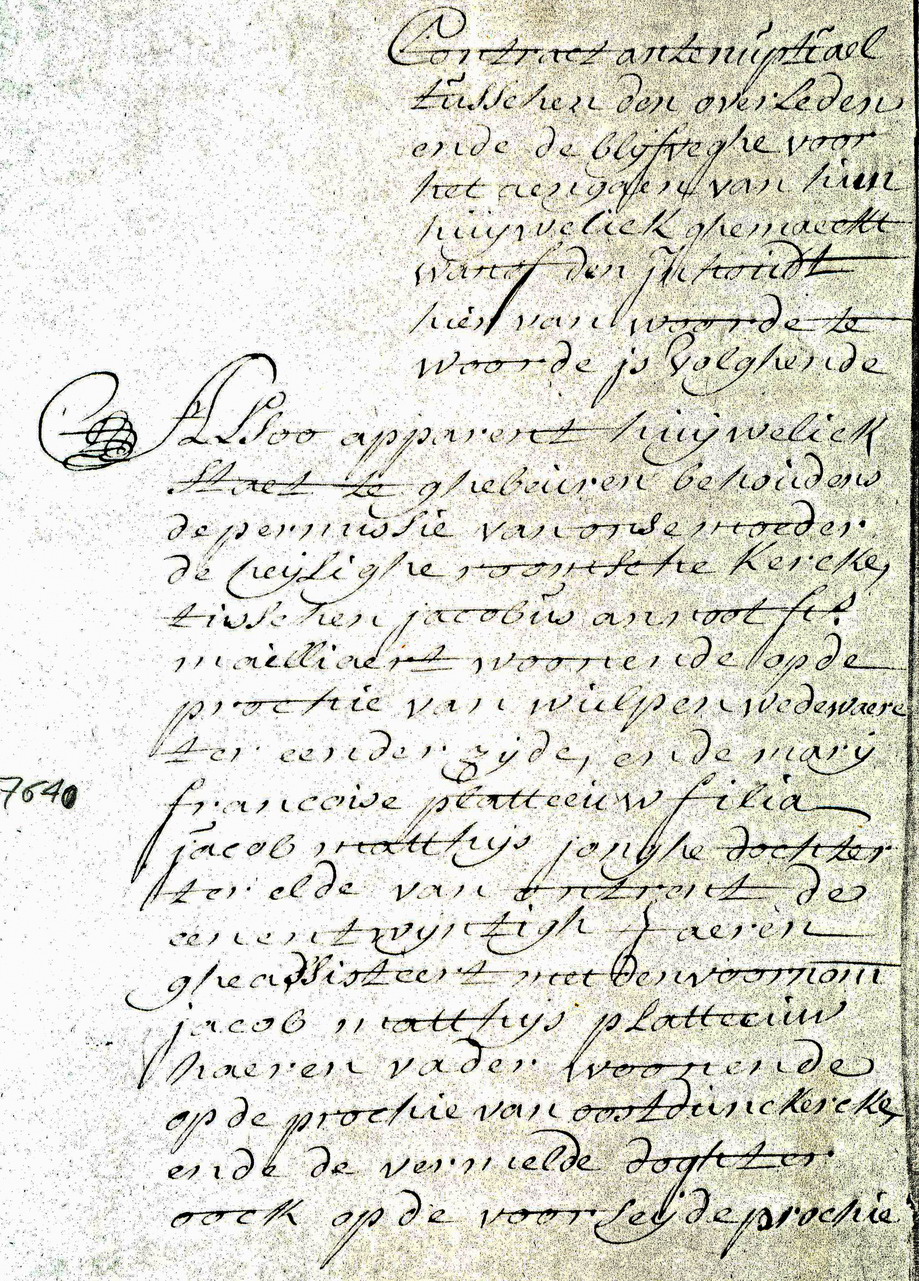 Contract antenuptiael
tusschen den overleden
ende de blijfveghe voor
het aengaen van hun
huijwelick ghemaeckt
wanof den jnhoudt
hier van woorde te
woorde js volghende
Alsoo apparent huijwelick
staet te ghebeuren behoudens
de permissie van onse moeder
de heijlighe roomsche kercke,
tusschen jacobus annoot fs.
mailliaert woonende op de
prochie van wulpen wedewaere
ter eender zijde, ende marij
francoise platteeuw filia
7640
jacob matthijs jonghe dochter
ter elde van ontrent de
eenentwyntigh jaeren
gheassisteert met den voornom
jacob matthijs platteeuw
haeren vader woonende
op de prochie van oostdunckercke,
ende de vermelde doghter
oock op de voorseijde prochie